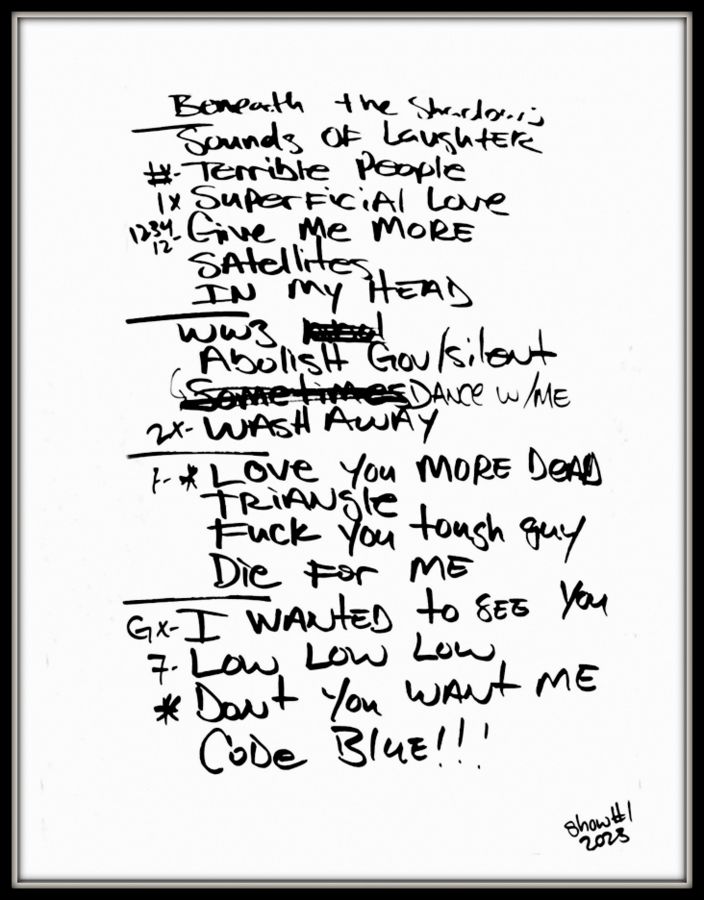 Beneath the Shadows
Sounds OF LaughtER
#- Terrible People
1x SuperFiciAl Love
1234 12- Give Me MORE
SAtellites
IN My HEAD
WW3
AboliSH Gov/silent
Sometimes DANCE w/ME
2x- WASH AWAY
1-* LOVE You MORE DEAD
TRiANgle
Fuck You tough guy
Die For ME
Gx- I WANTED to SEE You
7- Low Low Low
* Dont You WANt ME
CoDe Blue!!!
show#1
2023